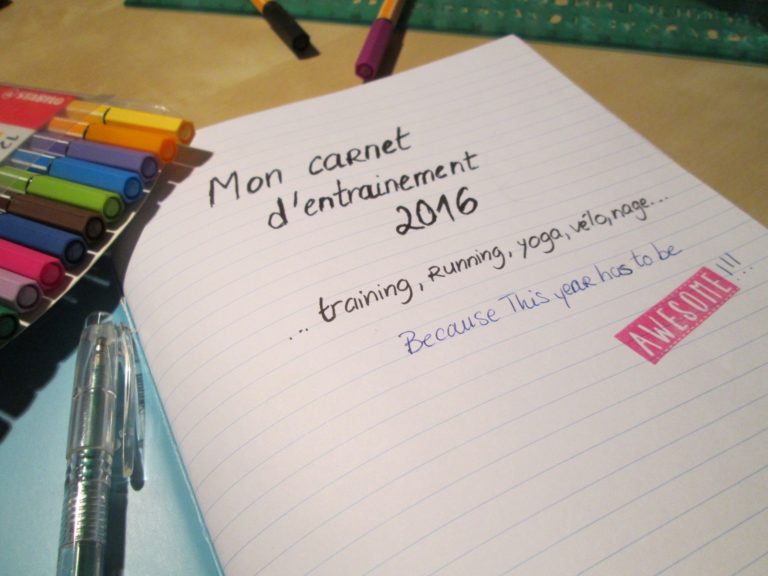 STABILO
Mon carnet
d'entrainement
2016
... training, Running, yoga, vélo, nage...
Because This year has to be
AWESOME !!! ...